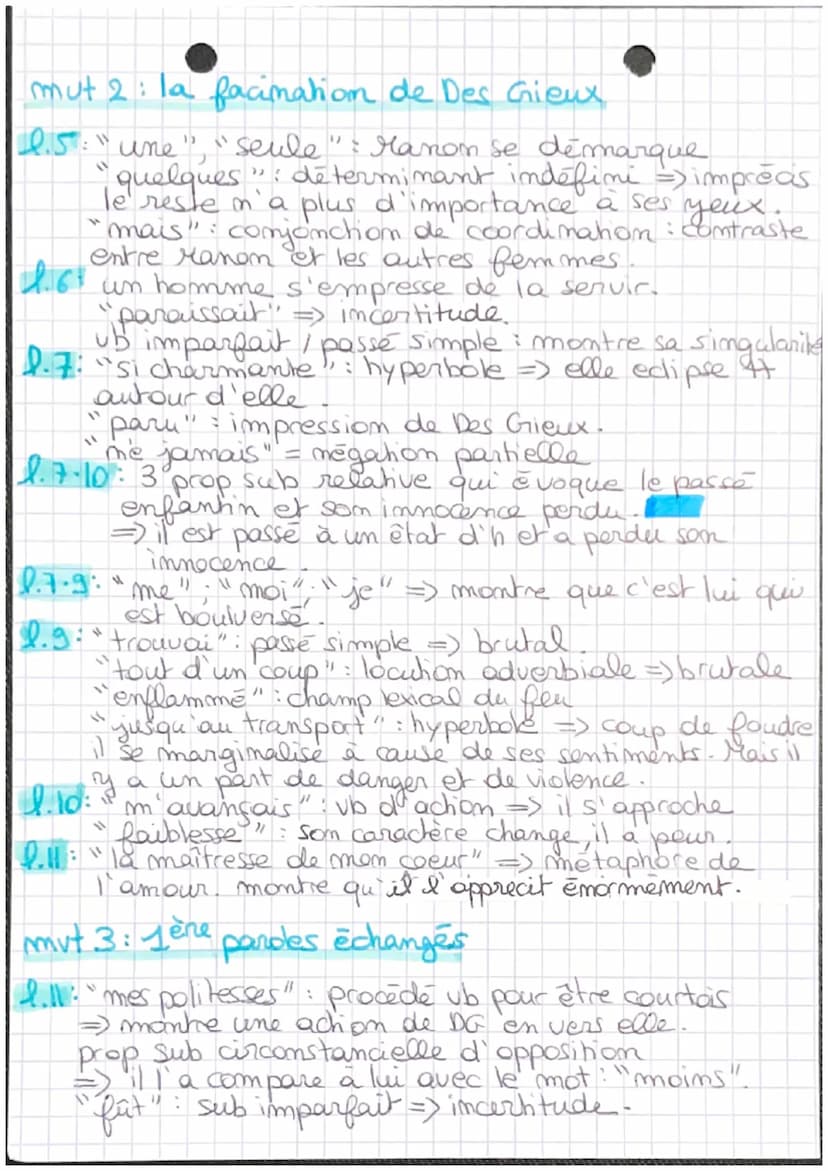 mvt 2 : la facination de Des Grieux
l.5 : "une", "seule" : Manon se démarque
"quelques" : déterminant indéfini => imprécis
le reste n'a plus d'importance à ses yeux.
"mais" : conjonction de coordination : contraste
entre Manon et les autres femmes.
l.6 : un homme s'empresse de la servir.
"paraissait" => incertitude.
vb imparfait / passé simple : montre sa singularité
l.7 : "si charmante" : hyperbole => elle eclipse tt
autour d'elle.
"paru" : impression de Des Grieux.
"ne jamais" = négation partielle
l.7-10 : 3 prop sub relative qui évoque le passé
enfantin et son innocence perdu.
=> il est passé à un êtat d'h et a perdu son
innocence.
l.7-9 : "me" ; "moi" ; "je" => montre que c'est lui qui
est boulversé.
l.9 : "trouvai" : passé simple => brutal.
"tout d'un coup" : locution adverbiale => brutale
"enflammé" : champ lexical du feu
"jusqu'au transport" : hyperbole => coup de foudre
il se marginalise à cause de ses sentiments. Mais il
y a un part de danger et de violence.
l.10 : "m'avançais" : vb d'action => il s'approche
"faiblesse" : son caractère change, il a peur.
l.11 : "la maîtresse de mon coeur" => métaphore de
l'amour. montre qu'il l'apprecit énormément.
mvt 3 : 1ère paroles échangés
l.11 : "mes politesses" : procédé vb pour être courtois
=> montre une action de DG en vers elle.
prop sub circonstancielle d'opposition
=> il l'a compare à lui avec le mot : "moins".
"fût" : sub imparfait => incertitude.